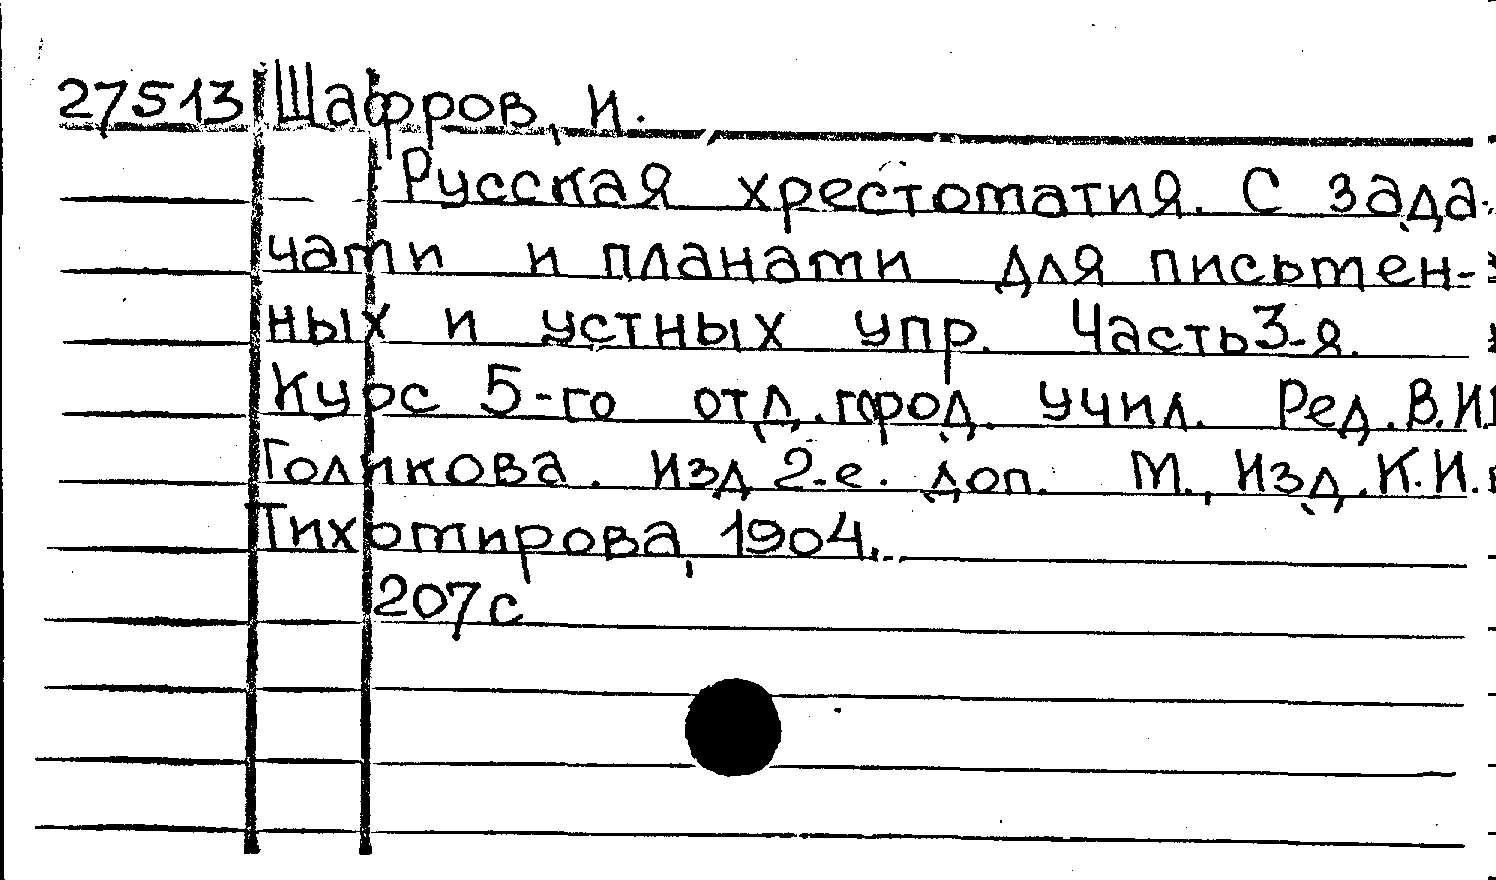 27513 Шафров, И.
Русская хрестоматия. С зада-
чами и планами для письмен-
ных и устных упр. Часть 3-я.
Курс 5-го отд. город. учил. Ред. В.И.
Голикова. Изд 2-е. доп. М., Изд. К.И.
Тихомирова, 1904.
207с